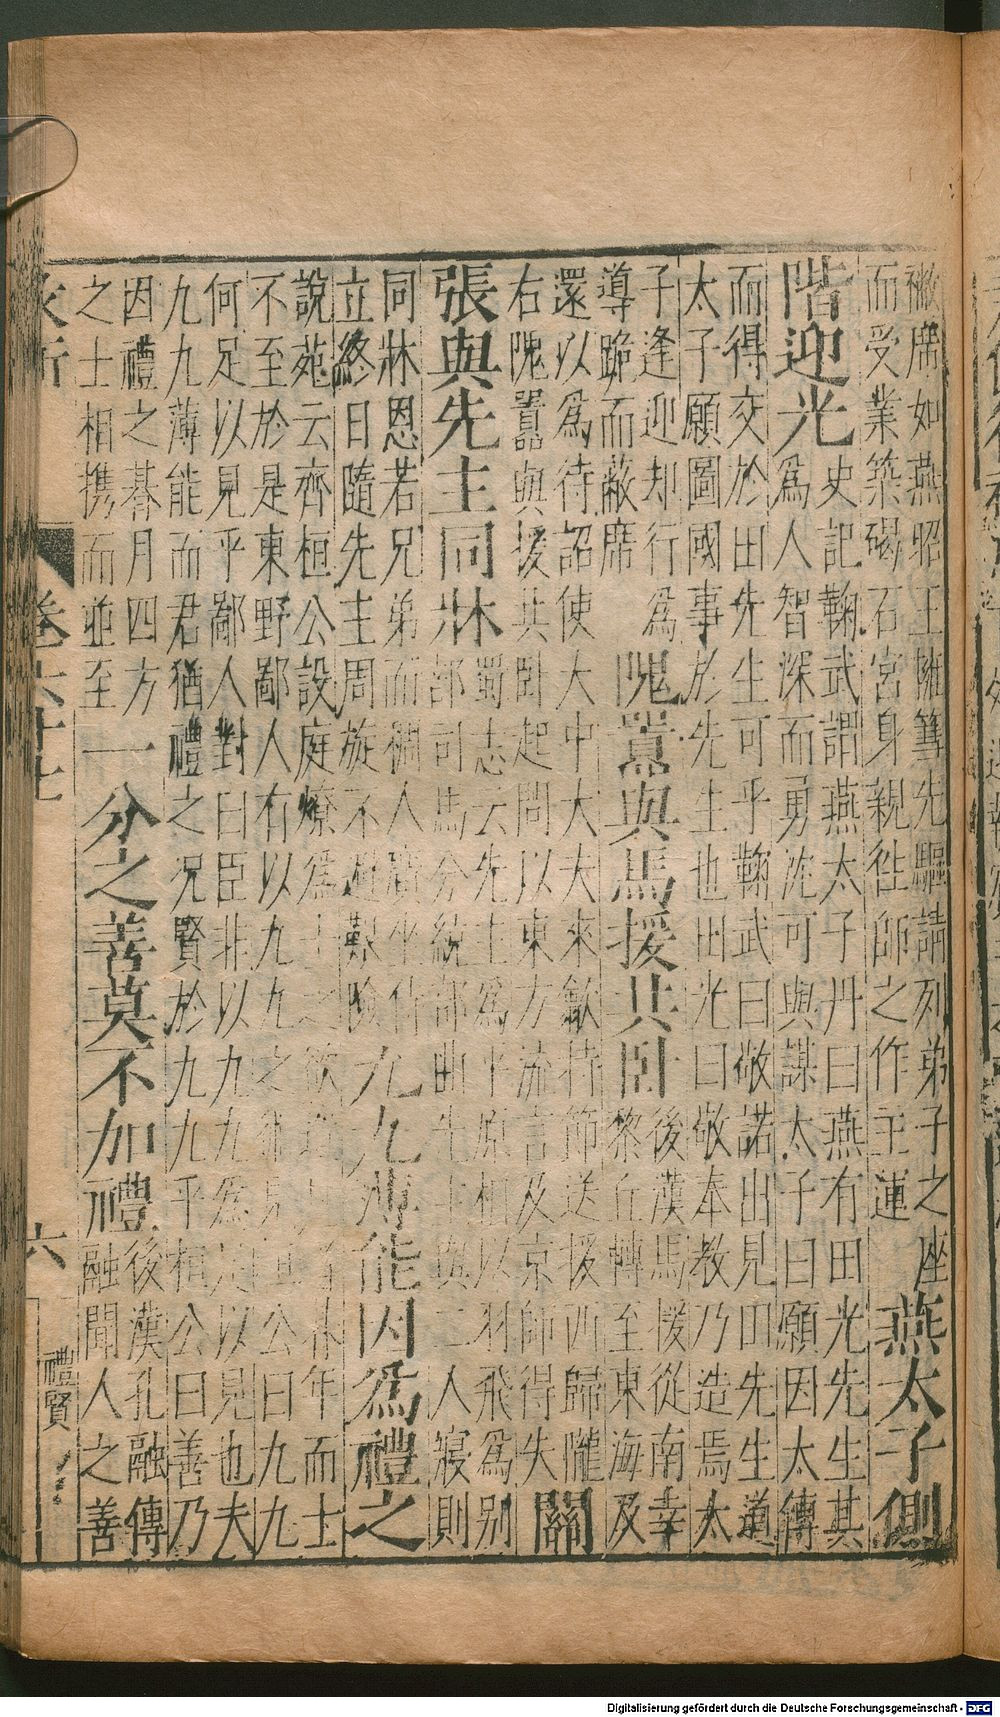 撇席如燕昭王擁篲先驅請列弟子之座
而受業築碣石宮身親徃師之作主運
燕太子側
階迎光
史記鞠武謂燕太子丹曰燕有田光先生其
為人智深而勇沈可與謀太子曰願因太傅
而得交於田先生可乎鞠武曰敬諾出見田先生道
太子願圖國事於先生也田光曰敬奉教乃造焉太
子逢迎却行爲
導跪而蔽席
隗囂與馬援共卧
後漢馬援從南幸
黎丘轉至東海及
還以爲待詔使大中大夫來歙持節送援西歸隴
右隗囂與援共卧起問以東方流言及京師得失
關
張與先主同牀
蜀志云先主爲平原相以羽飛爲别
部司馬分統部曲先主與二人寢則
同牀恩若兄弟而稠人廣坐侍
立終日隨先主周旋不避艱險
九九薄能因爲禮之
說苑云齊桓公設庭燎爲士之欲造見者朞年而士
不至於是東野鄙人有以九九之術見桓公曰九九
何足以見乎鄙人對曰臣非以九九爲足以見也夫
九九薄能而君猶禮之况賢於九九乎桓公曰善乃
因禮之朞月四方
之士相携而並至
一分之善莫不加禮
後漢孔融傳
融聞人之善
卷六十七
六
禮賢
Digitalisierung gefördert durch die Deutsche Forschungsgemeinschaft - DFG